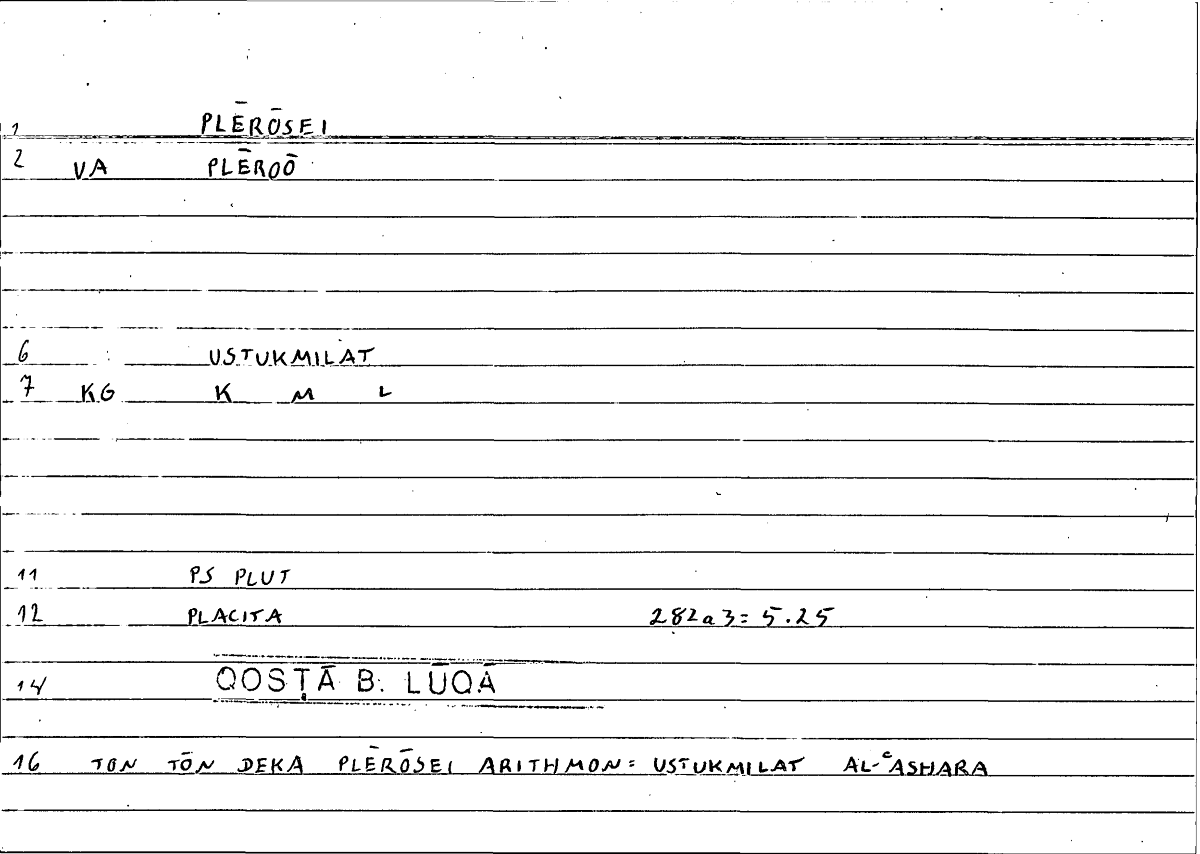 1 PLĒRŌSEI
2 VA PLĒROŌ
6 USTUKMILAT
7 KG K M L
11 PS PLUT
12 PLACITA 282a3=5.25
14 QOSṬĀ B. LŪQĀ
16 TON TŌN DEKA PLĒRŌSEI ARITHMON= USTUKMILAT AL-ᶜASHARA